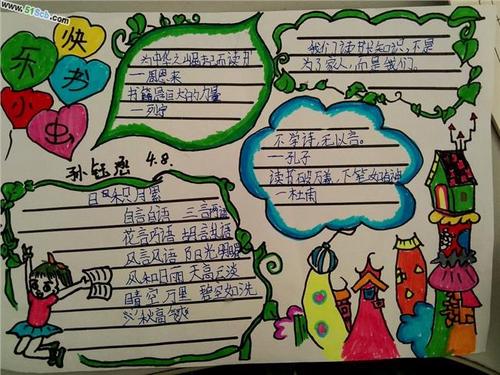 www.51Scb.com
快乐书
小虫
为中华之崛起而读书
—周恩来
书籍是巨大的力量
—列宁
我们读书求知识,不是
为了家人,而是我们。
不学诗,无以言。
—孔子
读书破万卷,下笔如有神
—杜甫
4.8.
日积月累
自言自语 三言两语
花言巧语 胡言乱语
风言风语 阳光明媚
风和日丽 天高云淡
晴空万里 碧空如洗
秋高气爽